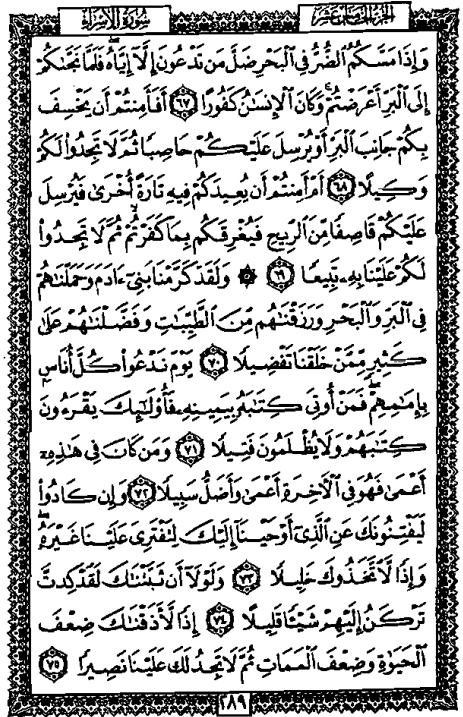 الجزء الخامس عشر
سورة الإسراء
وَإِذَا مَسَّكُمُ ٱلضُّرُّ فِى ٱلْبَحْرِ ضَلَّ مَن تَدْعُونَ إِلَّآ إِيَّاهُ فَلَمَّا نَجَّىٰكُمْ
إِلَى ٱلْبَرِّ أَعْرَضْتُمْ وَكَانَ ٱلْإِنسَٰنُ كَفُورًا ٦٧ أَفَأَمِنتُمْ أَن يَخْسِفَ
بِكُمْ جَانِبَ ٱلْبَرِّ أَوْ يُرْسِلَ عَلَيْكُمْ حَاصِبًا ثُمَّ لَا تَجِدُوا۟ لَكُمْ
وَكِيلًا ٦٨ أَمْ أَمِنتُمْ أَن يُعِيدَكُمْ فِيهِ تَارَةً أُخْرَىٰ فَيُرْسِلَ
عَلَيْكُمْ قَاصِفًا مِّنَ ٱلرِّيحِ فَيُغْرِقَكُم بِمَا كَفَرْتُمْ ثُمَّ لَا تَجِدُوا۟
لَكُمْ عَلَيْنَا بِهِۦ تَبِيعًا ٦٩ ۞ وَلَقَدْ كَرَّمْنَا بَنِىٓ ءَادَمَ وَحَمَلْنَٰهُمْ
فِى ٱلْبَرِّ وَٱلْبَحْرِ وَرَزَقْنَٰهُم مِّنَ ٱلطَّيِّبَٰتِ وَفَضَّلْنَٰهُمْ عَلَىٰ
كَثِيرٍ مِّمَّنْ خَلَقْنَا تَفْضِيلًا ٧٠ يَوْمَ نَدْعُوا۟ كُلَّ أُنَاسٍۭ
بِإِمَٰمِهِمْ ۖ فَمَنْ أُوتِىَ كِتَٰبَهُۥ بِيَمِينِهِۦ فَأُو۟لَٰٓئِكَ يَقْرَءُونَ
كِتَٰبَهُمْ وَلَا يُظْلَمُونَ فَتِيلًا ٧١ وَمَن كَانَ فِى هَٰذِهِۦٓ
أَعْمَىٰ فَهُوَ فِى ٱلْءَاخِرَةِ أَعْمَىٰ وَأَضَلُّ سَبِيلًا ٧٢ وَإِن كَادُوا۟
لَيَفْتِنُونَكَ عَنِ ٱلَّذِىٓ أَوْحَيْنَآ إِلَيْكَ لِتَفْتَرِىَ عَلَيْنَا غَيْرَهُۥ ۖ
وَإِذًا لَّٱتَّخَذُوكَ خَلِيلًا ٧٣ وَلَوْلَآ أَن ثَبَّتْنَٰكَ لَقَدْ كِدتَّ
تَرْكَنُ إِلَيْهِمْ شَيْـًٔا قَلِيلًا ٧٤ إِذًا لَّأَذَقْنَٰكَ ضِعْفَ
ٱلْحَيَوٰةِ وَضِعْفَ ٱلْمَمَاتِ ثُمَّ لَا تَجِدُ لَكَ عَلَيْنَا نَصِيرًا ٧٥
٢٨٩